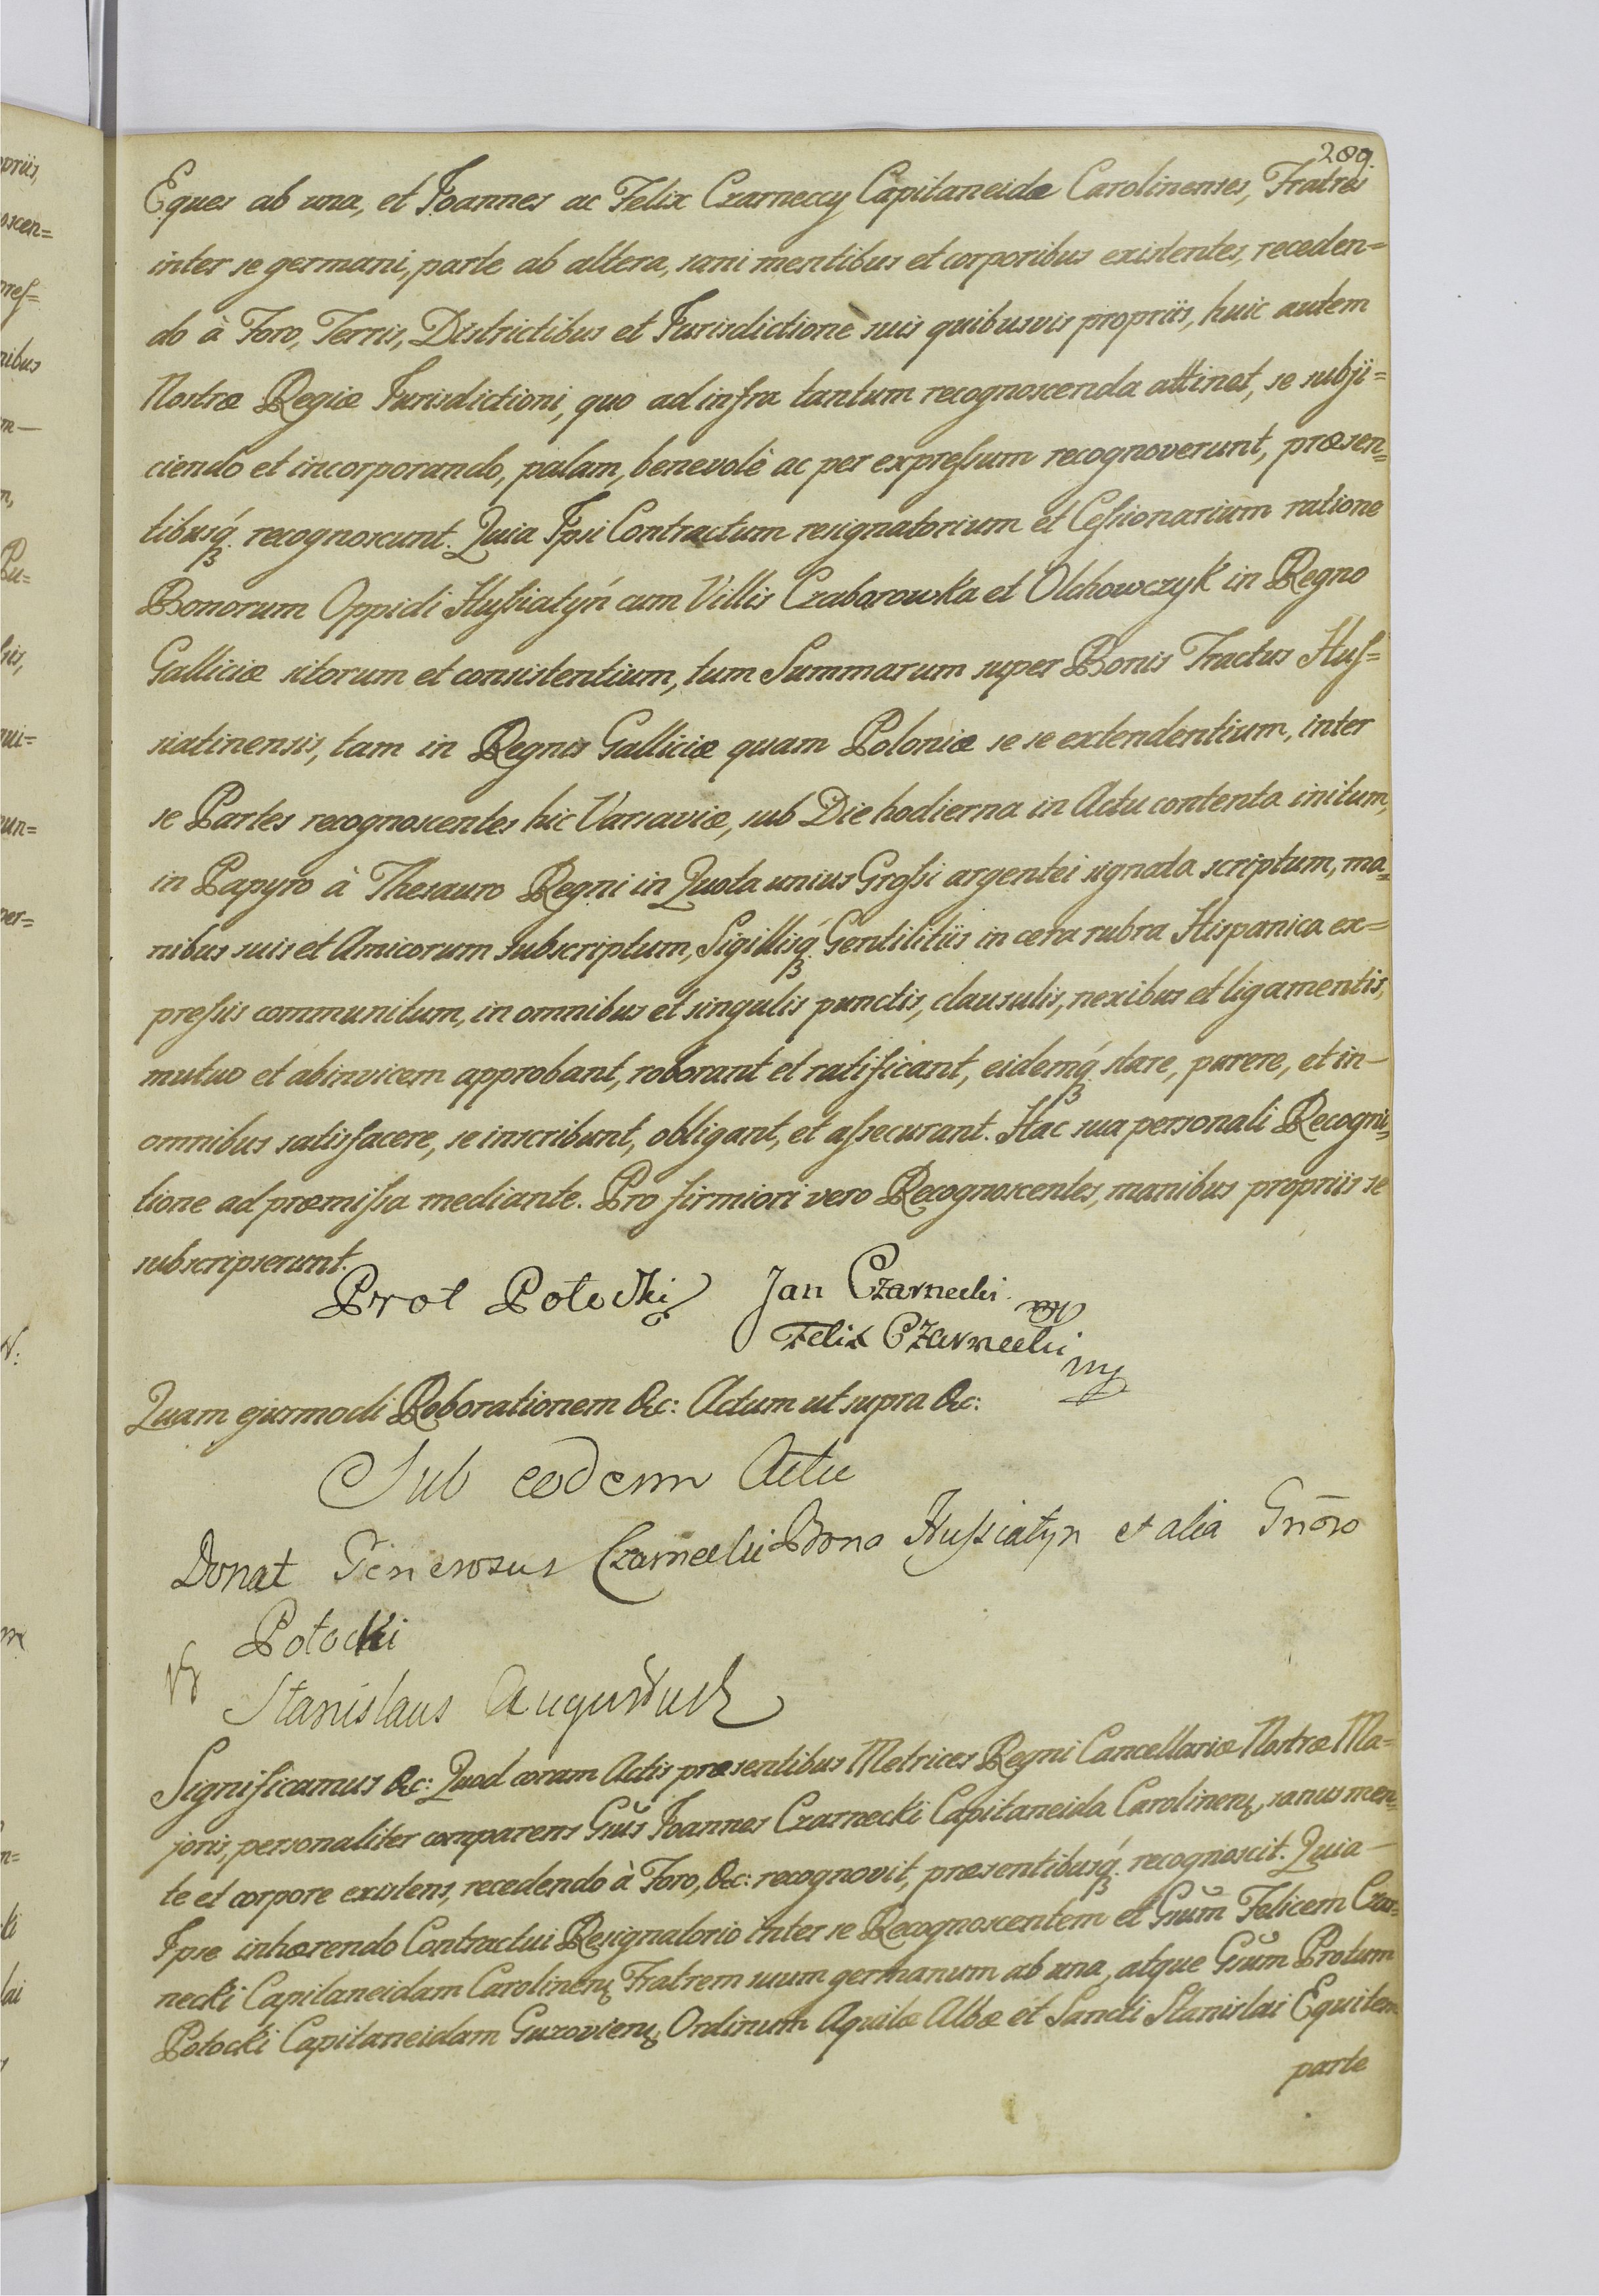 289.
Eques ab una, et Joannes ac Felix Czarneccy Capitaneidæ Carolinenses, Fratres
inter se germani, parte ab altera, sani mentibus et corporibus existentes, receden=
do à Foro, Terris, Districtibus et Jurisdictione suis quibusvis propriis, huic autem
Nostræ Regiæ Jurisdictioni, quo ad infra tantum recognoscenda attinet, se subji=
ciendo et incorporando, palam, benevolè ac per expreſsum recognoverunt, præsen=
tibusq́ꝫ recognoscunt. Quia Ipsi Contractum resignatorium et Ceſsionarium ratione
Bonorum Oppidi Huſsiatyń cum Villis Czabarowka et Olchowczyk in Regno
Galliciæ sitorum et consistentium, tum Summarum super Bonis Tractus Huſ=
siatinensis, tam in Regnis Galliciæ quam Poloniæ se se extendentium, inter
se Partes recognoscentes hic Varsaviæ, sub Die hodierna in Actu contenta initum,
in Papyro à Thesauro Regni in Quota unius Groſsi argentei signata scriptum, ma=
nibus suis et Amicorum subscriptum, Sigillisq́ꝫ Gentilitiis in cera rubra Hispanica ex=
preſsis communitum, in omnibus et singulis punctis, clausulis, nexibus et ligamentis,
mutuo et abinvicem approbant, roborant et ratificant, eidemq́ꝫ stare, parere, et in—
omnibus satisfacere, se inscribunt, obligant, et aſsecurant. Hac sua personali Recogni=
tione ad præmiſsa mediante. Pro firmiori vero Recognoscentes, manibus propriis se
subscripserunt.
Prot Potocki Jan Czarnecki mp
Felix Czarnecki
mp
Quam ejusmodi Roborationem &c: Actum ut supra &c:
Sub eodem Actu
Donat Generosus Czarnecki Bona Huſsiatyn et alia Gn̄oso
Potocki
Stanislaus Augustus R
Significamus &c: Quod coram Actis præsentibus Metrices Regni Cancellariæ Nostræ Ma=
joris, personaliter comparens Gn̄us Joannes Czarnecki Capitaneida Carolinenꝭ, sanus men=
te et corpore existens, recedendo à Foro, &c: recognovit, præsentibusq́ꝫ recognoscit. Quia—
Ipse inhærendo Contractui Resignatorio inter se Recognoscentem et Gn̄um Felicem Czar=
necki Capitaneidam Carolinenꝭ Fratrem suum germanum ab una, atque Gn̄um Protum
Potocki Capitaneidam Guzovienꝭ, Ordinum Aquilæ Albæ et Sancti Stanislai Equitem
parte